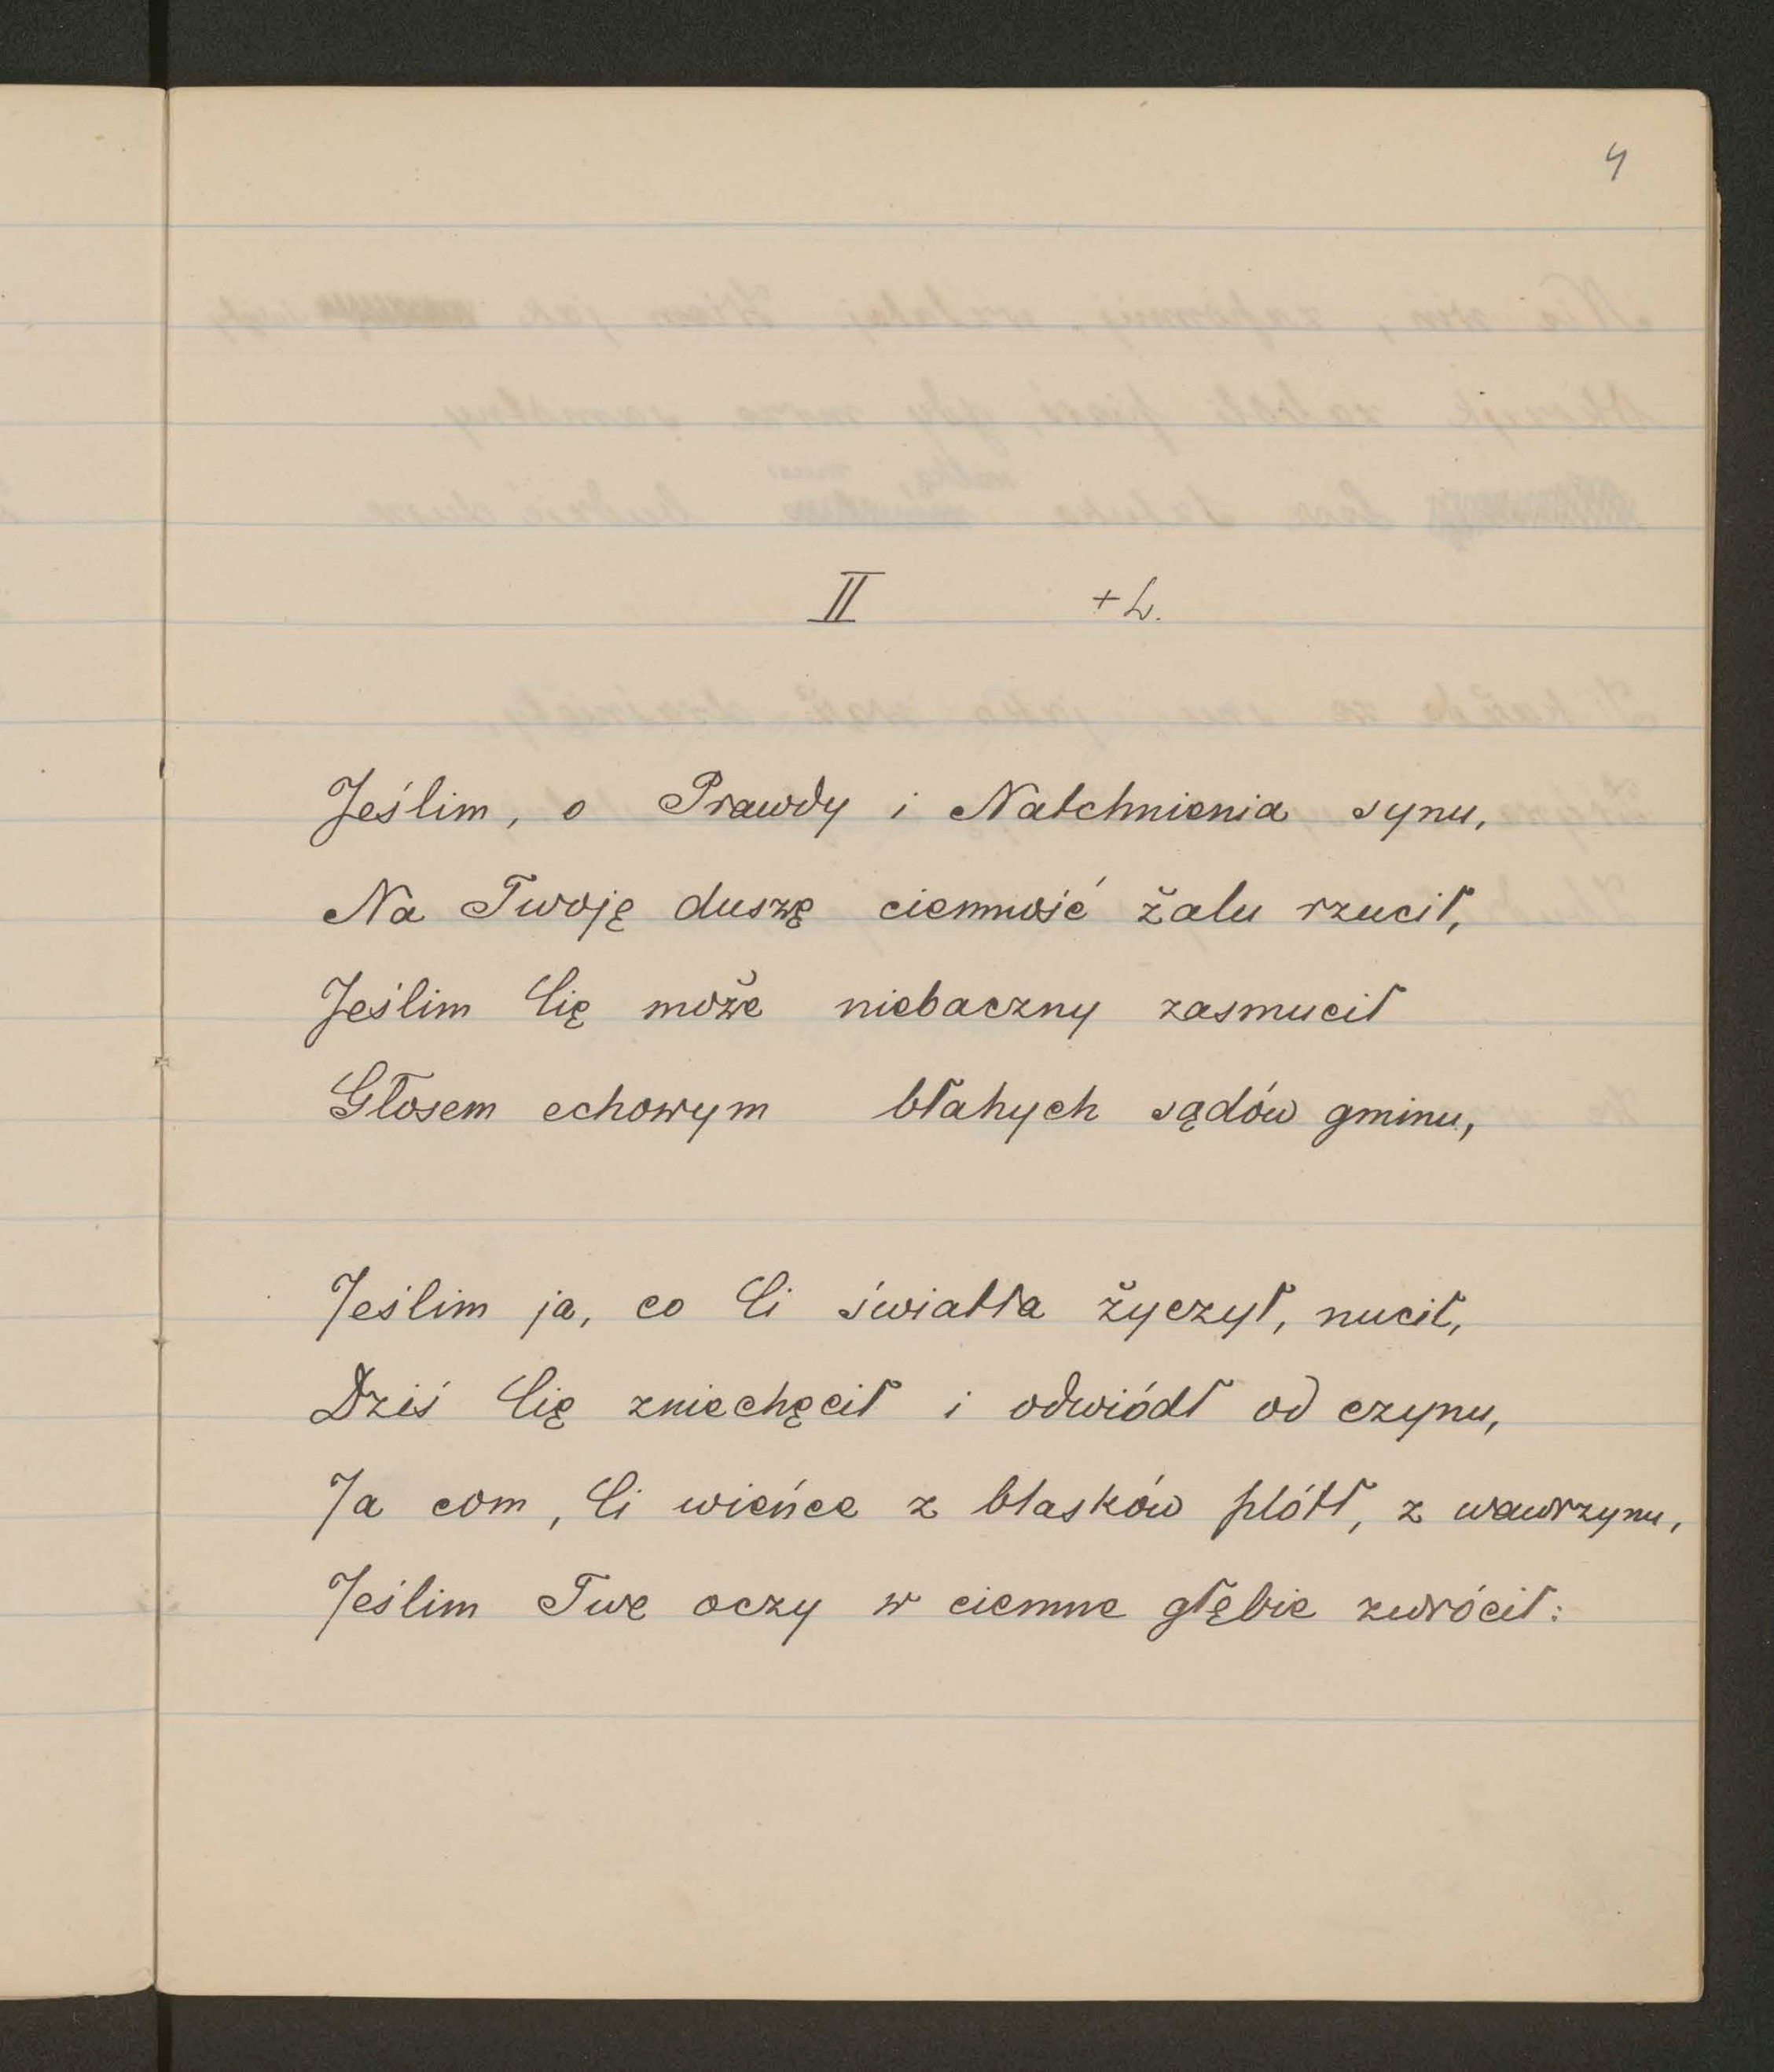 4
II +L.
Jeślim, o Prawdy i Natchnienia synu,
Na Twoję duszę ciemność żalu rzucił,
Jeślim Cię może niebaczny zasmucił
Głosem echowym błahych sądów gminu,
Jeślim ja, co Ci światła życzył, nucił,
Dziś Cię zniechęcił i odwiódł od czynu,
Ja com, Ci wieńce z blasków plótł, z wawrzynu,
Jeślim Twe oczy w ciemne głębie zwrócił: